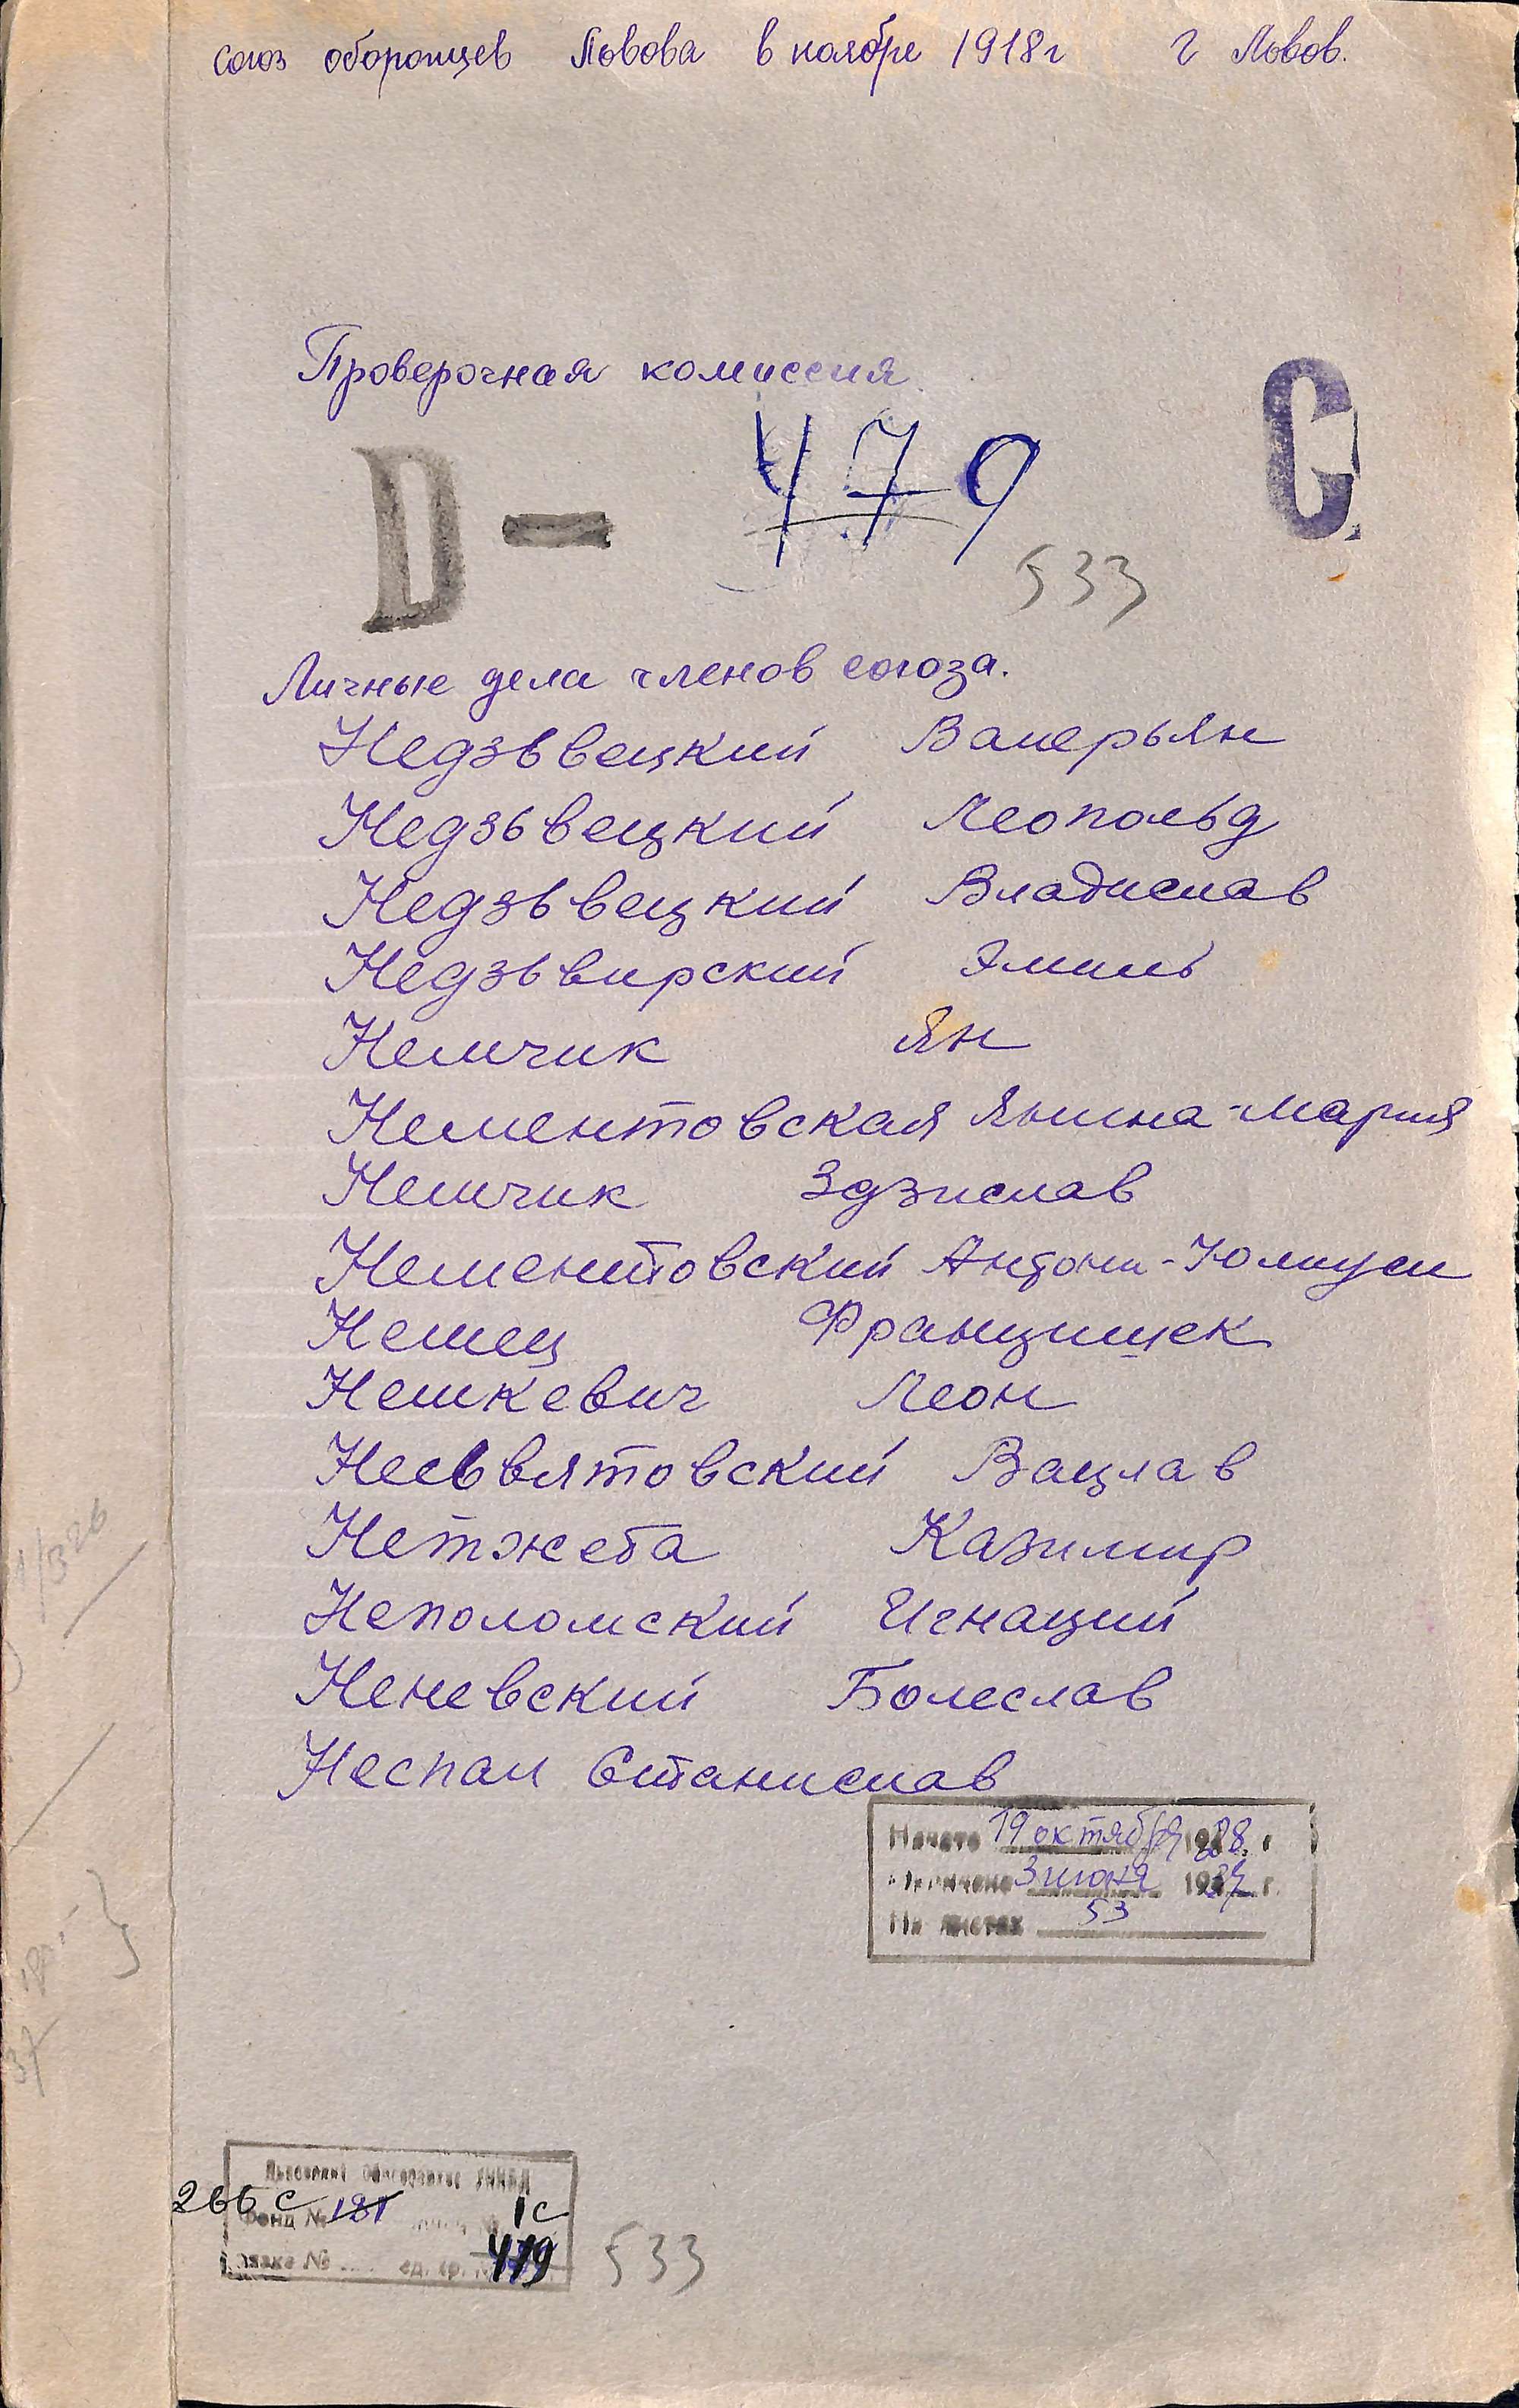 союз оборонцев Львова в ноябре 1918г г Львов.
Проверочная комиссия
С
D — 479
533
Личные дела членов союза.
Недзьвецкий Валерьян
Недзьвецкий Леопольд
Недзьвецкий Владислав
Недзьвирский Эмиль
Немчик Ян
Нементовская Янина-Мария
Немчик Здзислав
Нементовский Антони-Юлиуси
Немец Францишек
Нешкевич Леон
Несьвятовский Вацлав
Нетжеба Казимир
Неполомский Игнаций
Неневский Болеслав
Неспал Станислав
Начато 19 октября 1928 г
Окончено 3 июня 1934 г.
На листах 53
1/326
37
Львовский Облгосархив УНКВД
266 с Фонд № 181 1с
ед. хр. 479
533